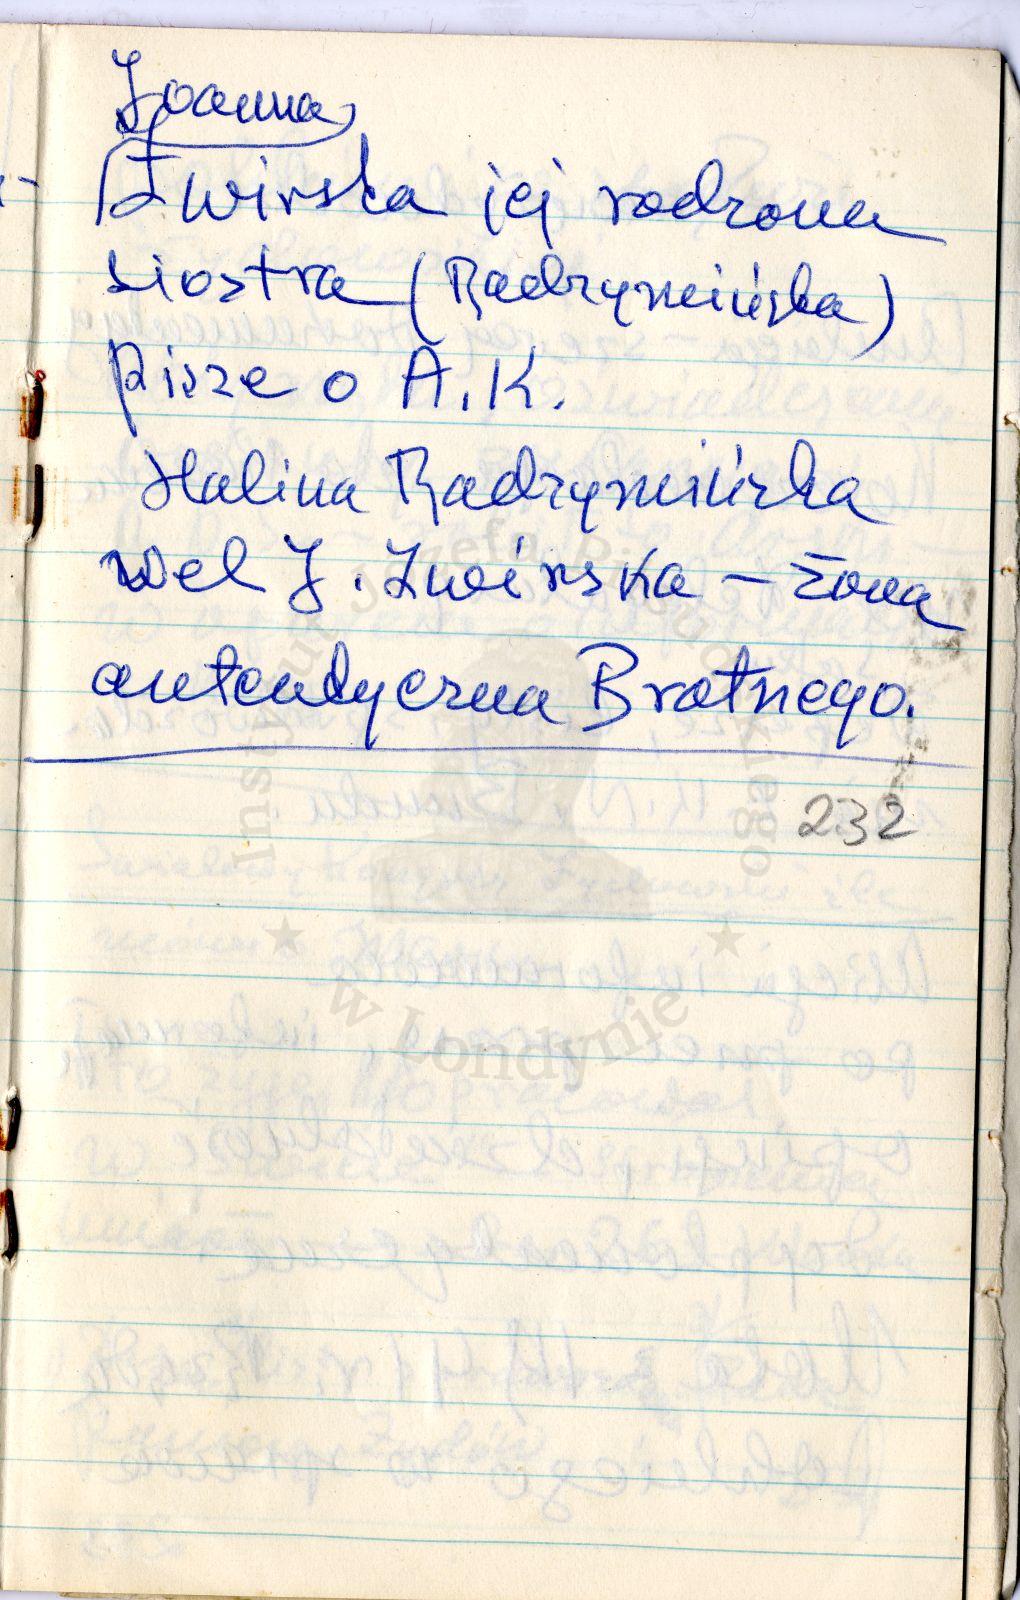 Joanna
Żwirska jej rodzona
siostra (Radzymińska)
pisze o A.K.
Halina Radzymińska
wel J. Żwirska – żona
autentyczna Bratnego.
232
Instytut Józefa Piłsudskiego
w Londynie